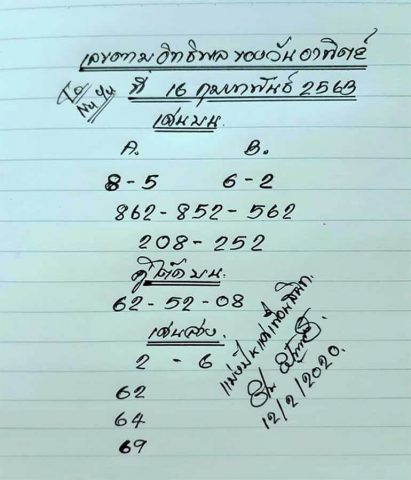 เลขตามอิทธิพลของวันอาทิตย์
ที่ 16 กุมภาพันธ์ 2563
To
Nu yu
เด่นบน
A. B.
8-5 6-2
862-852-562
208-252
คู่โต๊ดบน
62-52-08
เด่นล่าง.
2 - 6
62
64
69
แบ่งปันแด่เพื่อนสมิท.
12/2/2020.